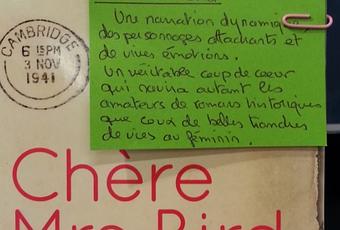 CAMBRIDGE
6 15PM
3 NOV
1941
Une narration dynamique,
des personnages attachants et
de vives émotions.
Un véritable coup de coeur
qui ravira autant les
amateurs de romans historiques
que ceux de belles tranches
de vies au féminin.
Chère
Mrs Bird